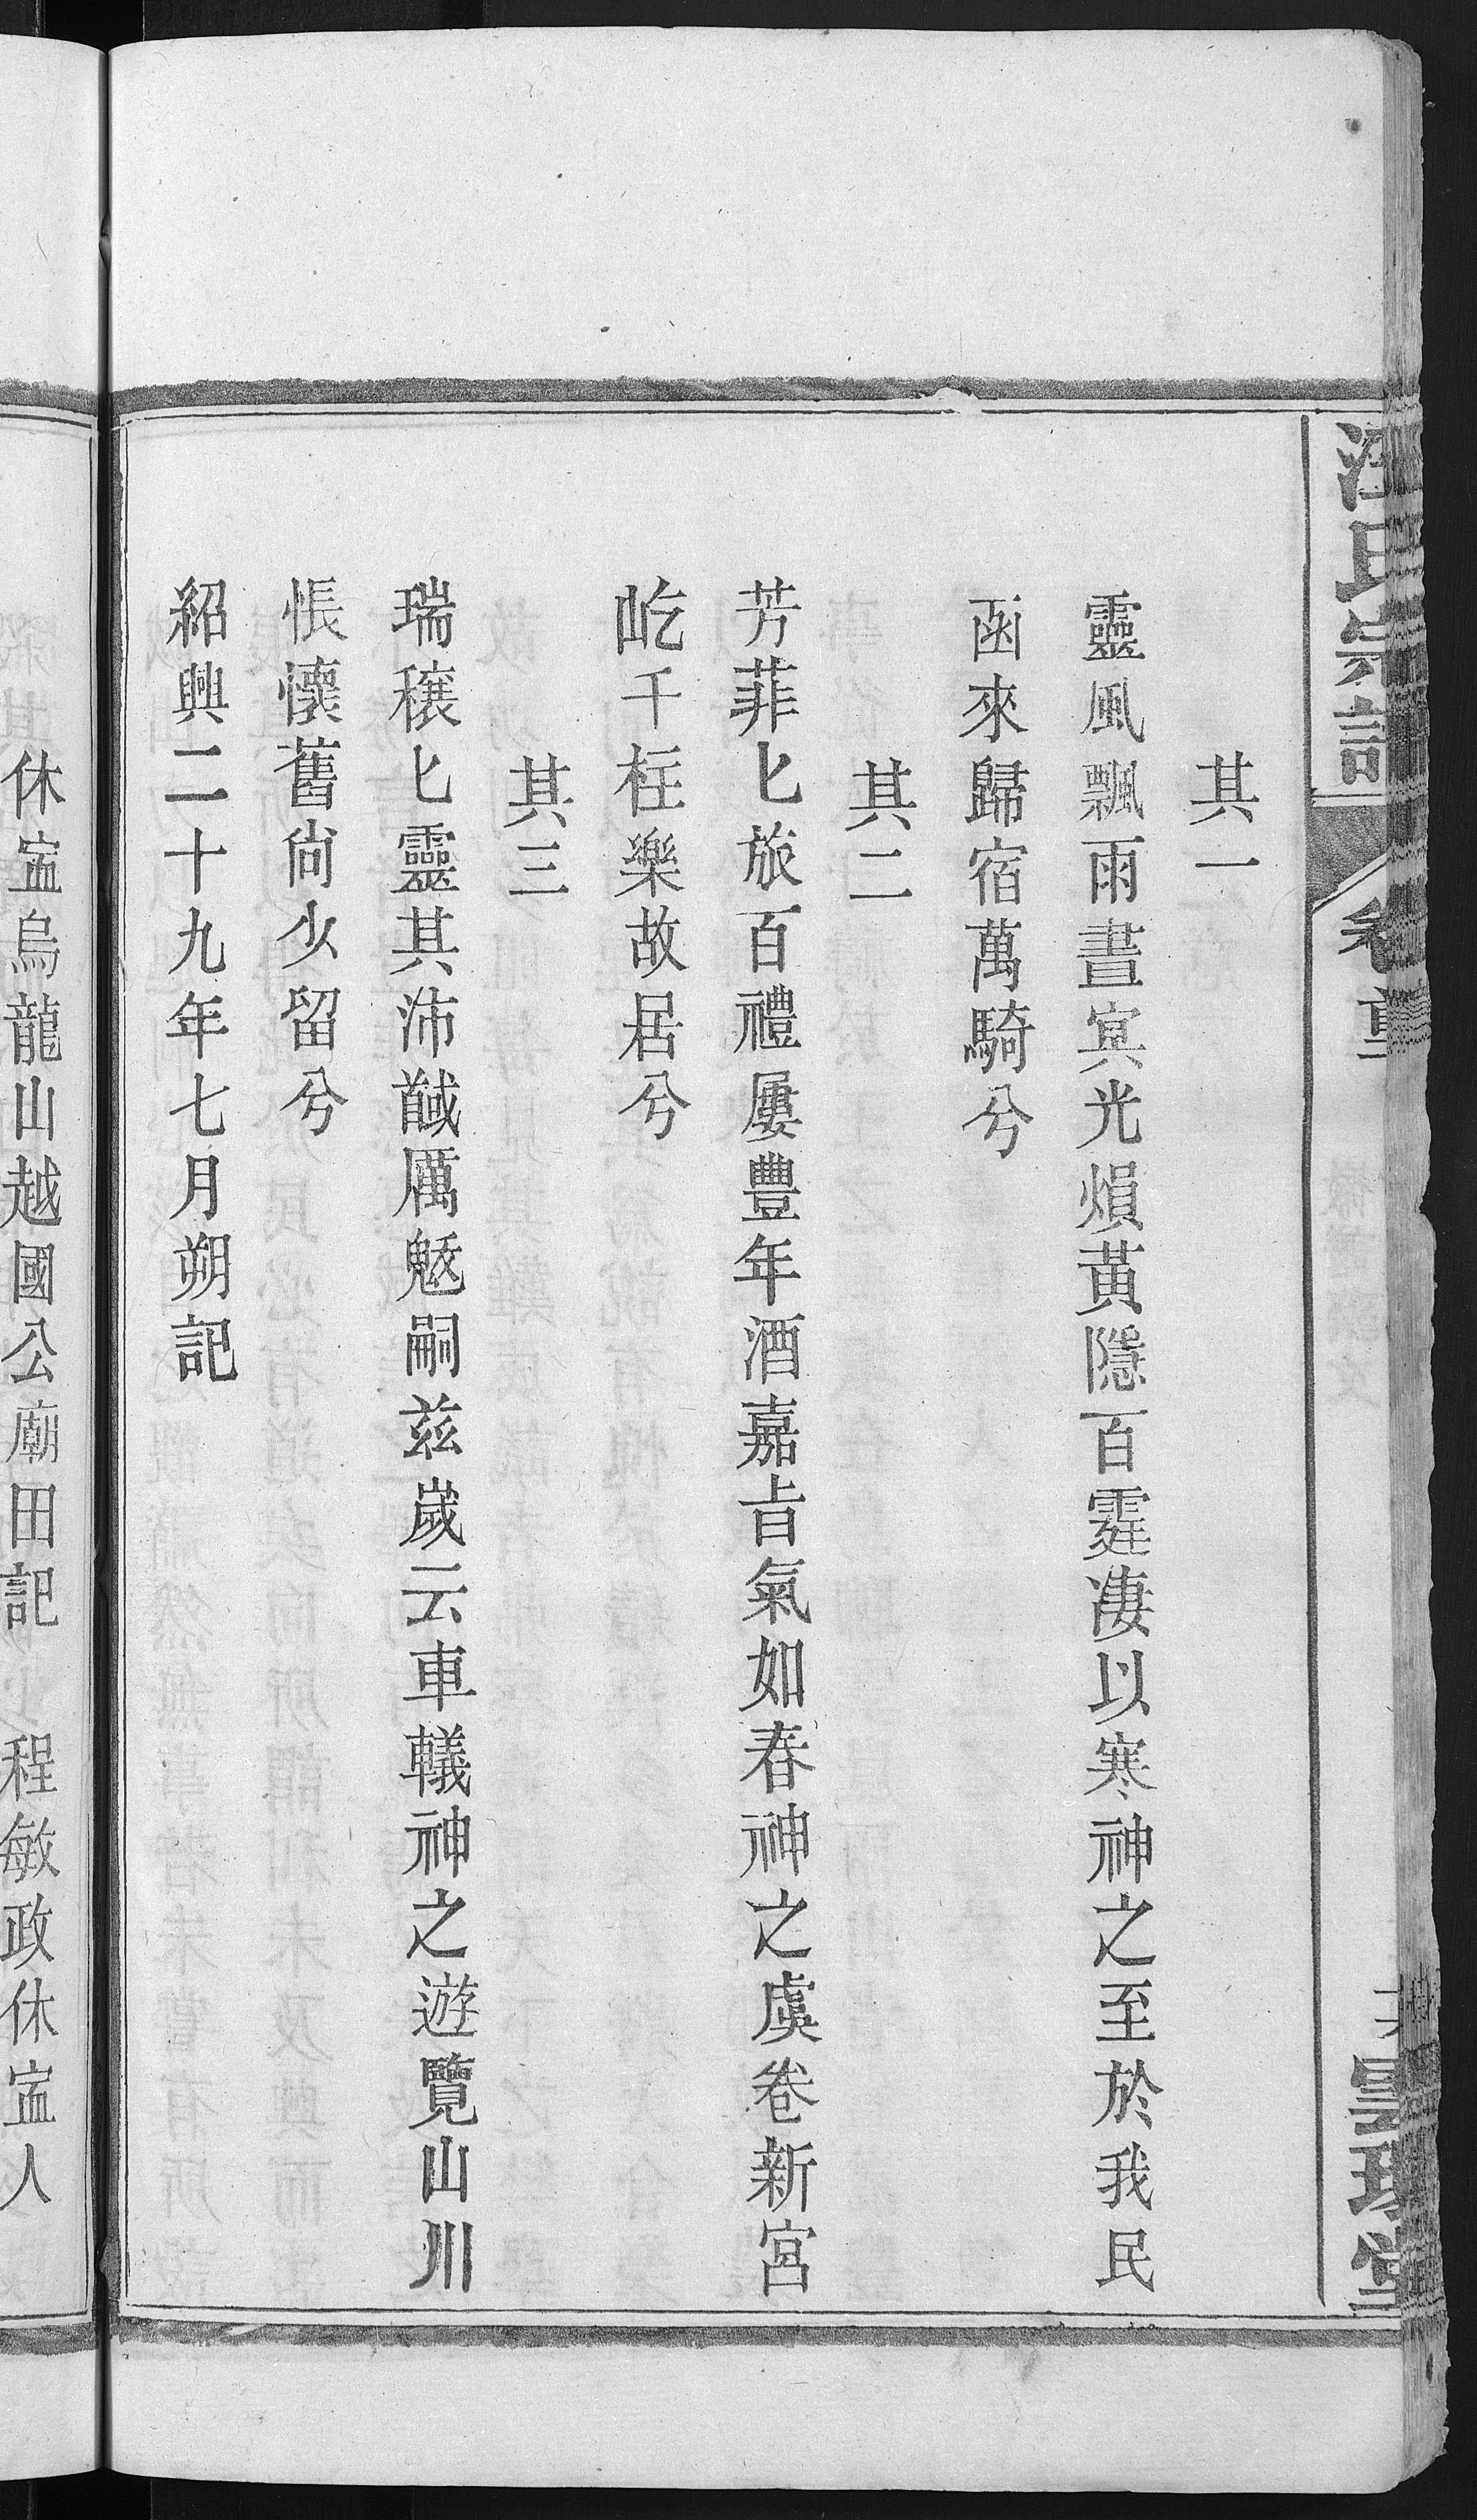 汪氏宗譜
卷首
其一
靈風飄雨晝㝠光熉黃隱百霆凄以寒神之至於我民
函來歸宿萬騎兮
其二
芳菲匕旅百禮屢豊年酒嘉㫖氣如春神之虞卷新宮
屹千柱樂故居兮
其三
瑞穰匕靈其沛馘厲魃嗣兹歲云車轙神之遊覽山川
悵懷舊尙少留兮
紹興二十九年七月朔記
休寍烏龍山越國公廟田記 程敏政休寍人